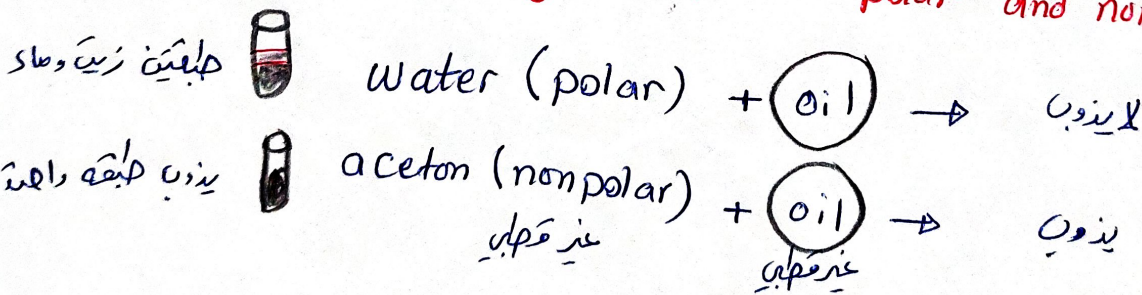 polar and non
طبقتين زيت وماء
water (polar) + oil → لا يذوب
يذوب طبقه واحدة
aceton (nonpolar) + oil → يذوب
غير قطبي
غير قطبي